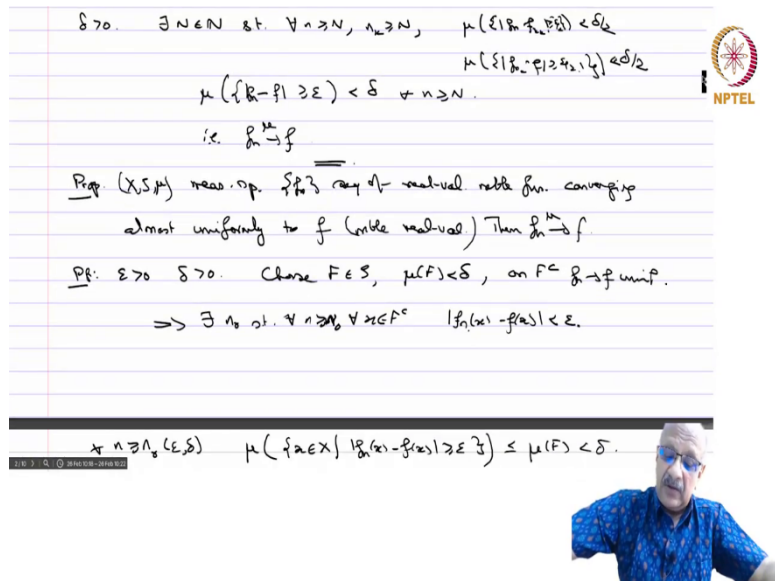 δ>0. ∃ N∈ℕ s.t. ∀ n≥N, nₖ≥N, μ({|fₙ-fₙₖ|≥ε/2}) < δ/2
μ({|fₙₖ-f|≥ε/2}) < δ/2
NPTEL
μ({|fₙ-f| ≥ε}) < δ ∀ n≥N.
i.e. fₙ →^μ f
Prop. (X,S,μ) meas. sp. {fₙ} seq of real-val. mble fun. converging
almost uniformly to f (mble real-val.) Then fₙ →^μ f.
Pf: ε>0 δ>0. Choose F∈S, μ(F)<δ, on Fᶜ fₙ→f unif.
⇒ ∃ n₀ st. ∀ n≥n₀ ∀ x∈Fᶜ |fₙ(x)-f(x)| < ε.
∀ n≥n₀(ε,δ) μ({x∈X | |fₙ(x)-f(x)|≥ε}) ≤ μ(F) < δ.
2/10